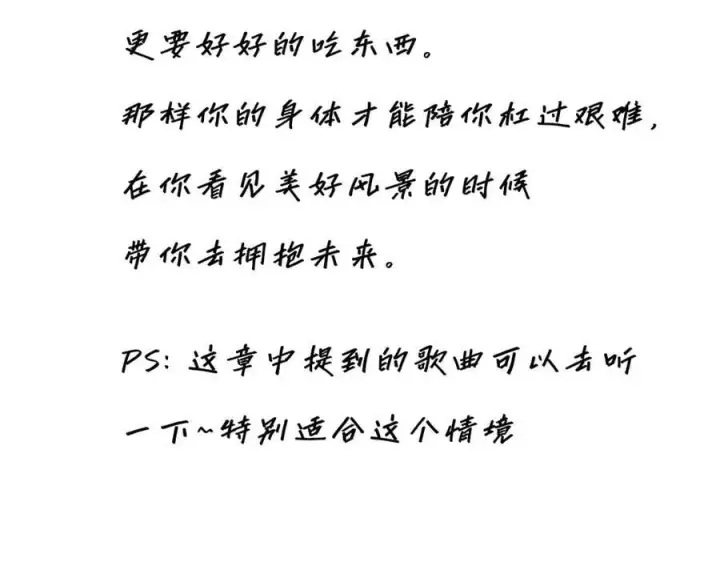 更要好好的吃东西。
那样你的身体才能陪你杠过艰难,
在你看见美好风景的时候
带你去拥抱未来。
PS: 这章中提到的歌曲可以去听
一下~特别适合这个情境